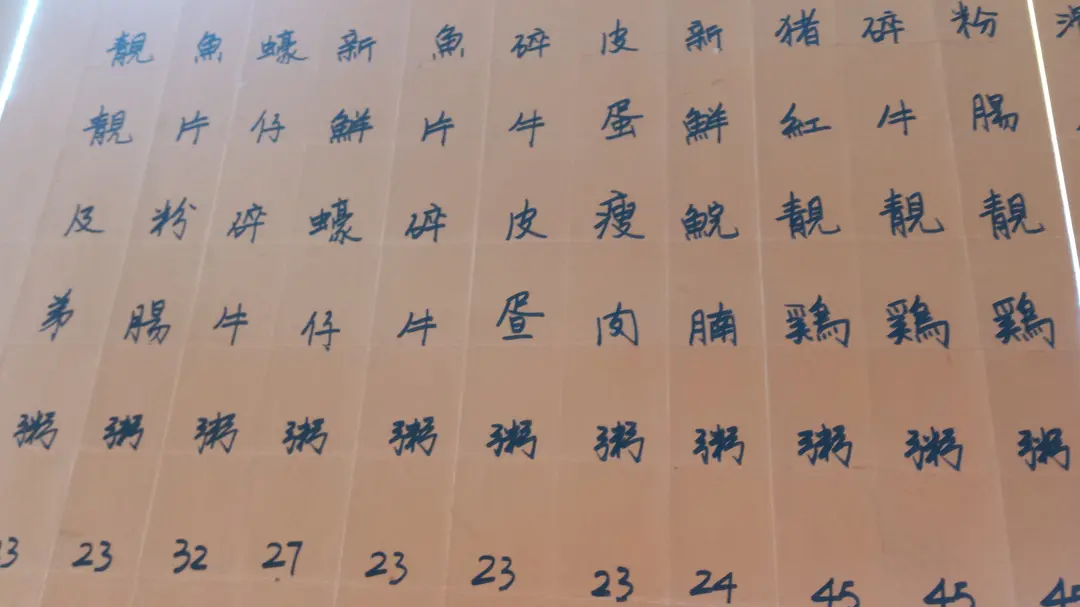 粉腸靚鷄粥 45
碎牛靚鷄粥 45
猪紅靚鷄粥 45
新鮮鯇腩粥 24
皮蛋瘦肉粥 23
碎牛皮疍粥 23
魚片碎牛粥 23
新鮮蠔仔粥 27
蠔仔碎牛粥 32
魚片粉腸粥 23
靚靚及弟粥 23